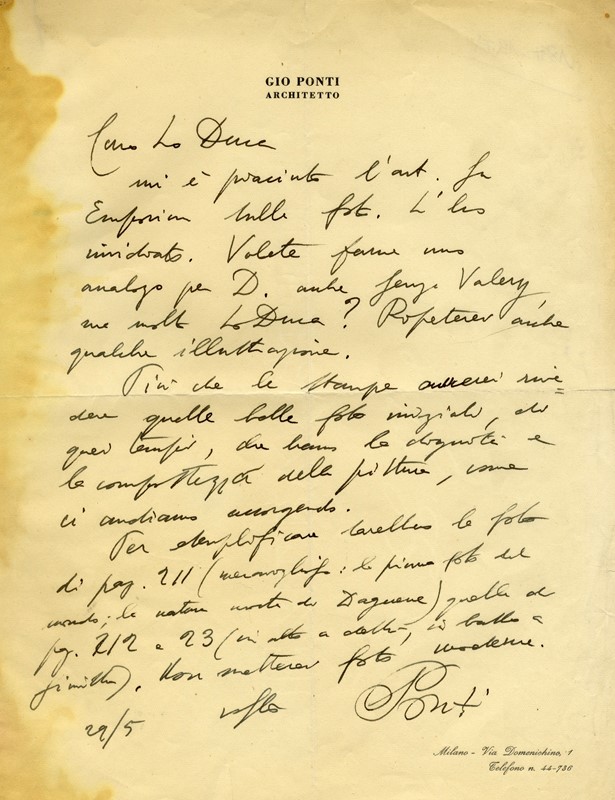 GIO PONTI
ARCHITETTO
Caro Lo Duca
mi è piaciuto l'art. su
Emporium sulle foto. L'ho
invidiato. Volete farne uno
analogo per D. anche senza Valery
ma molto Lo Duca? Ripeterei anche
qualche illustrazione.
Più che le stampe
quelle belle foto iniziali, di
quei tempi, che hanno la dignità e
la compostezza della pittura, come
ci andiamo accorgendo.
Per esemplificare sarebbero le foto
di pag. 211 (meravigliosa: la prima foto del
mondo; la natura morta di Daguerre) quella di
pag. 212 e 23 (in alto a destra, in basso a
sinistra). Non metterei foto moderne.
29/5 Ponti
Milano - Via Domenichino, 1
Telefono n. 44-736